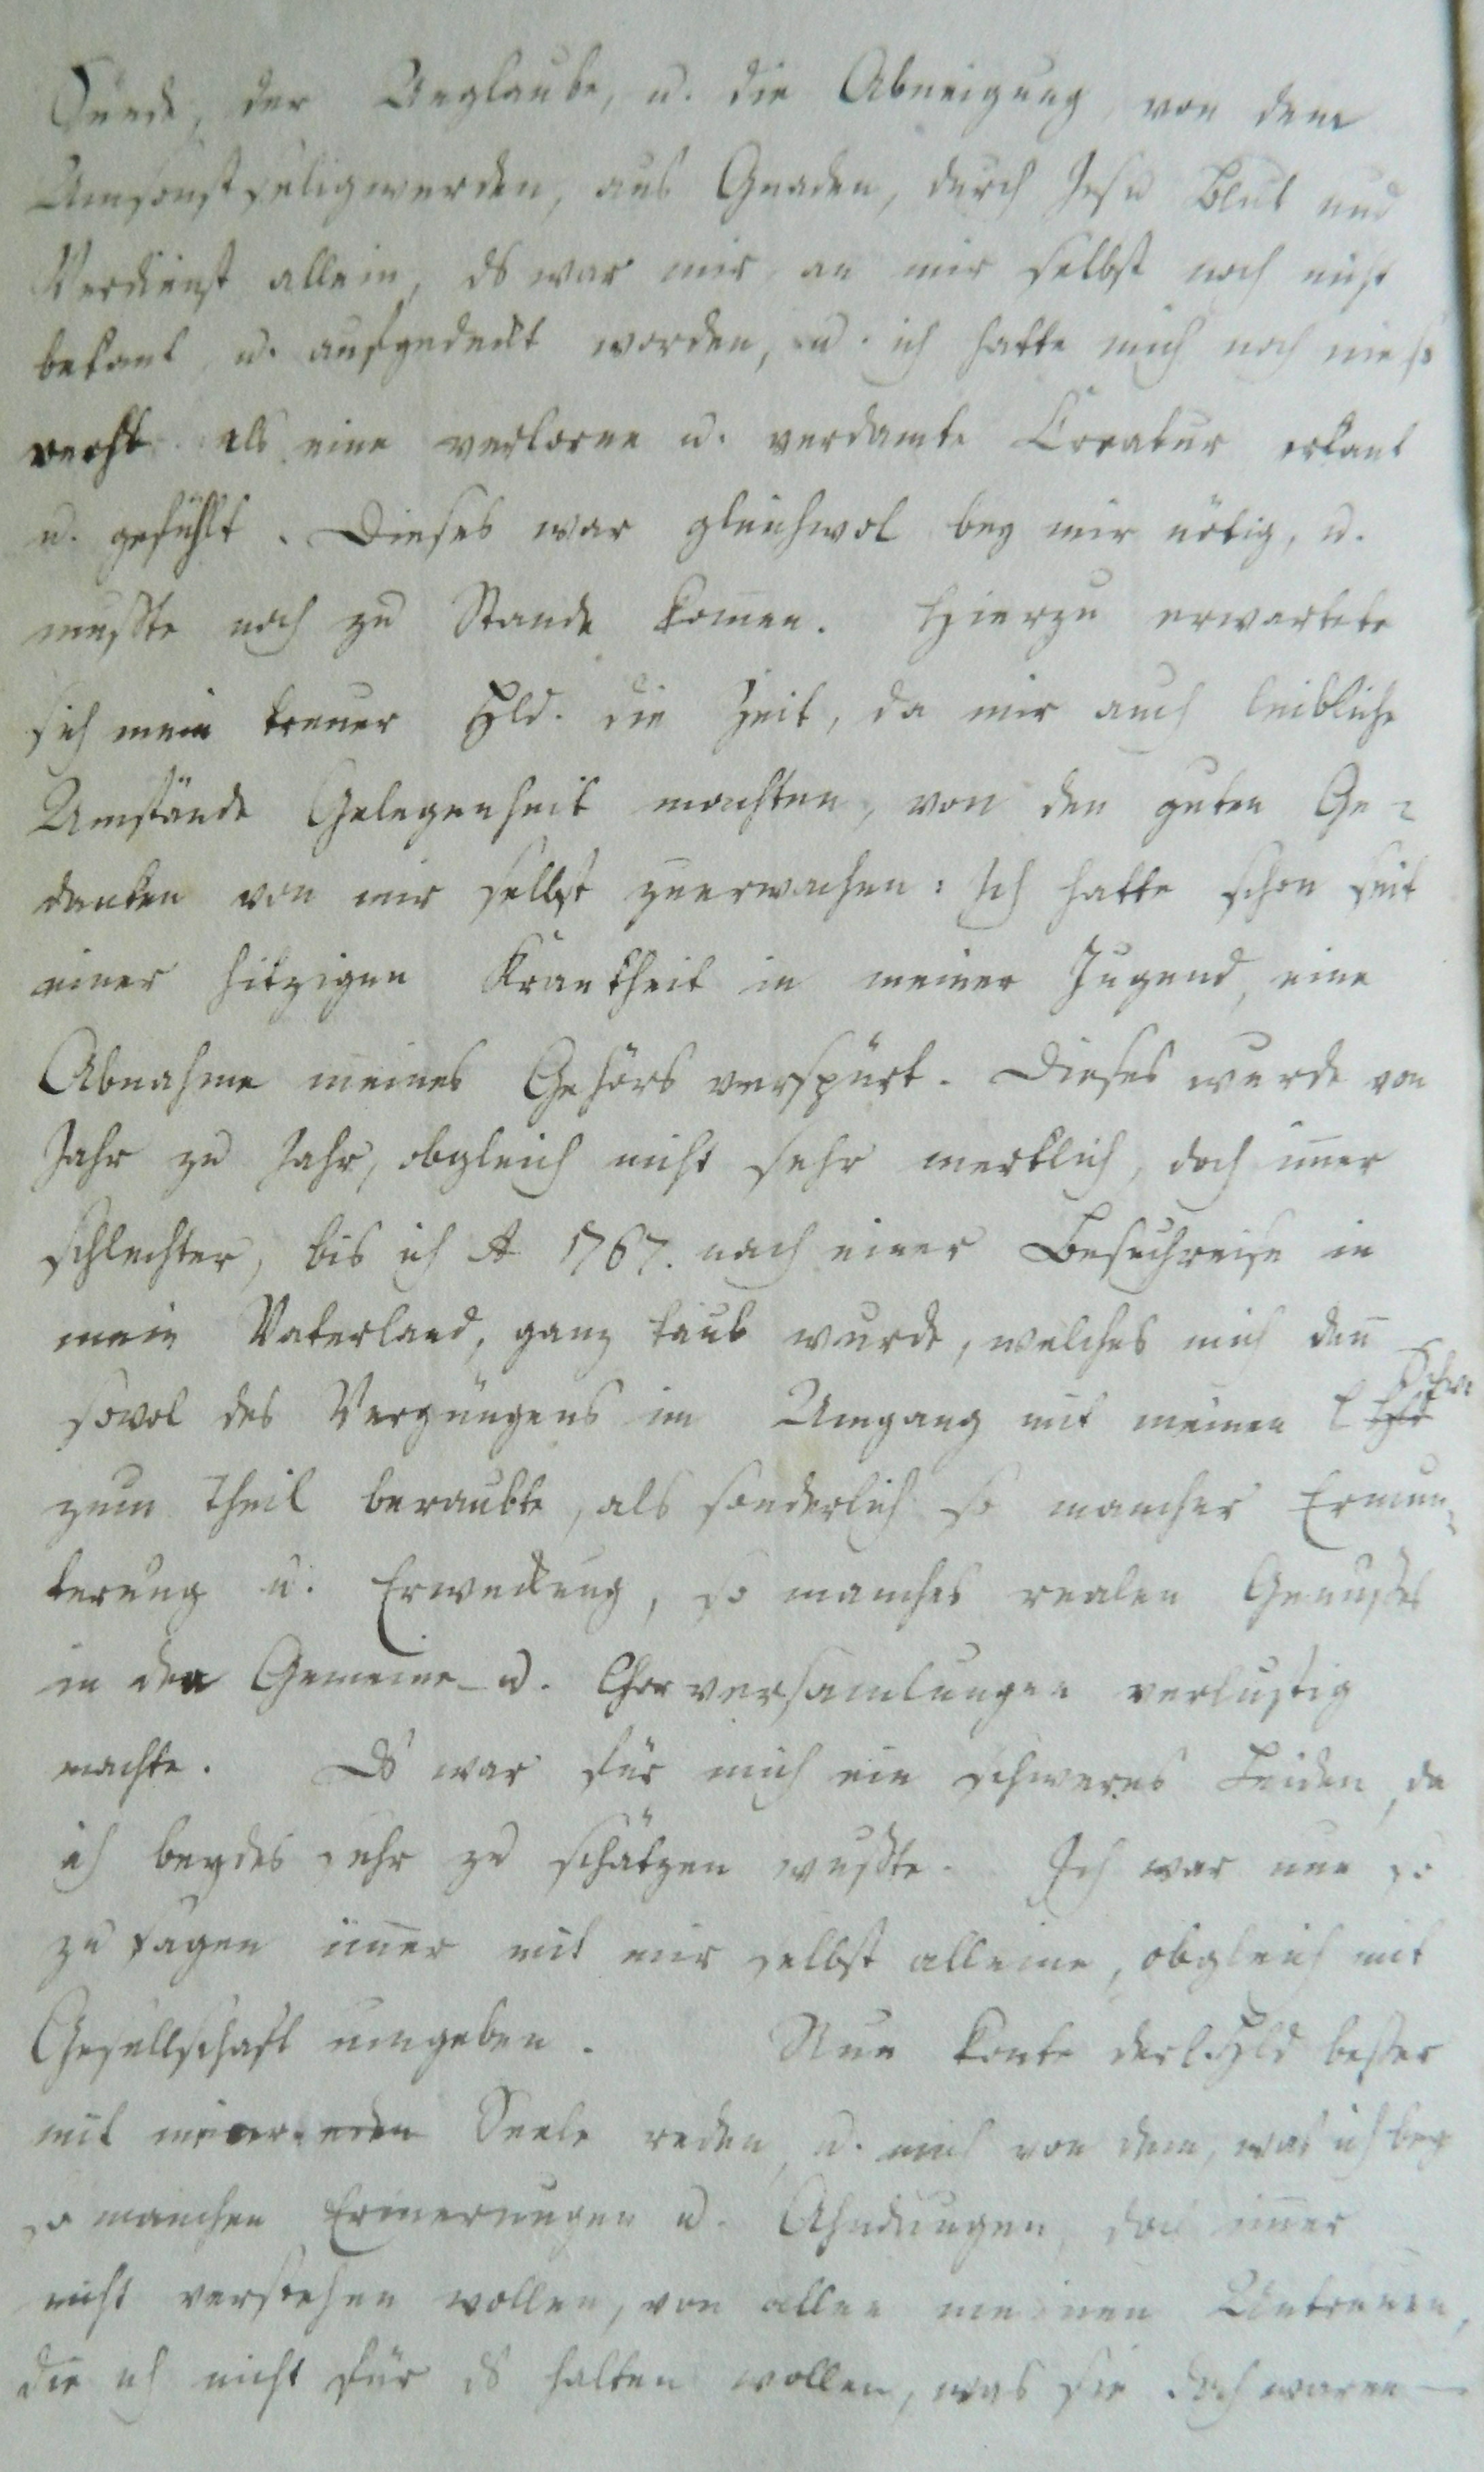 Sünde, der Unglaube, u. die Abneigung von dem
Umsonst seligwerden, aus Gnaden, durch Jesu Blut und
Verdienst allein, ds war mir an mir selbst noch nicht
bekant u. aufgedeckt worden, u. ich hatte mich noch nicht
recht als eine verlorne u. verdamte Creatur erkant
u. gefühlt. Dieses war gleichwol bey mir nötig, u.
mußte noch zu Stande kom̅en. Hierzu erwartete
sich mein treuer Hld. die Zeit, da mir auch leibliche
Umstände Gelegenheit machten, von den guten Ge-
danken von mir selbst zuerwachen: Ich hatte schon seit
einer hitzigen Krankheit in meiner Jugend, eine
Abnahme meines Gehörs verspürt. Dieses wurde von
Jahr zu Jahr, obgleich nicht sehr merklich, doch im̅er
schlechter, bis ich A 1767. nach einer Besuchreise in
mein Vaterland, ganz taub wurde, welches mich den̅
sowol des Vergnügens im Umgang mit meinen l Schw.
zum Theil beraubte, als sonderlich so mancher Ermun-
terung u. Erweckung, so manches realen Genußes
in den Gemein- u. Chorversamlungen verlustig
machte. Ds war für mich ein schweres Leiden, da
ich beydes sehr zu schätzen wußte. Ich war nun so
zu sagen im̅er mit mir selbst alleine, obgleich mit
Gesellschaft umgeben. Nun konte der l. Hld beßer
mit meiner Seele reden, u. mich von dem, was ich bey
so manchen Erinerungen u. Ahndungen, doch im̅er
nicht verstehen wollen, von allen meinen Untreuen,
die ich nicht für ds halten wollen, was sie doch waren —